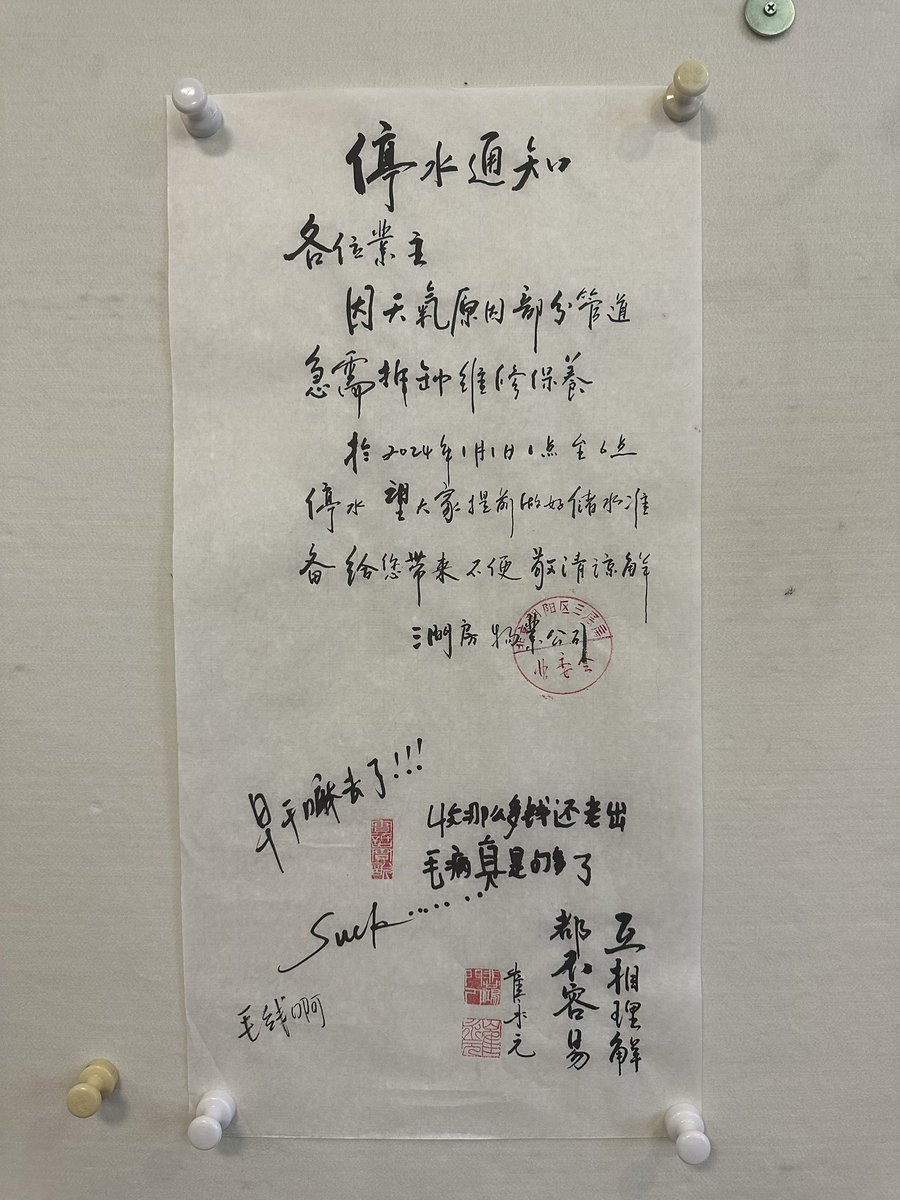 停水通知
各位業主
因天氣原因部分管道
急需拆卸维修保養
於2024年1月1日1点至6点
停水 望大家提前做好储水准
备 给您带来不便 敬请谅解
三間房物業公司
业委会
早干嘛去了!!!
收那么多钱还老出
毛病真是的多了
Suck........
毛线啊
互相理解
都不容易
崔永元